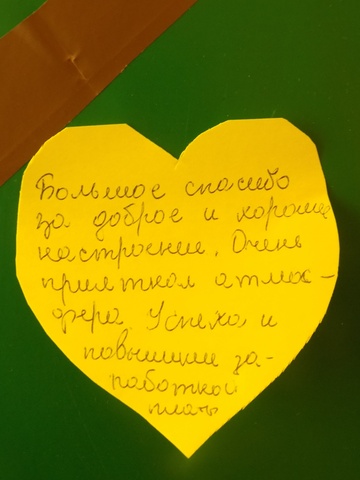 Большое спасибо
за доброе и хорошее
настроение. Очень
приятная атмос-
фера. Успеха и
повышении за-
работной
платы